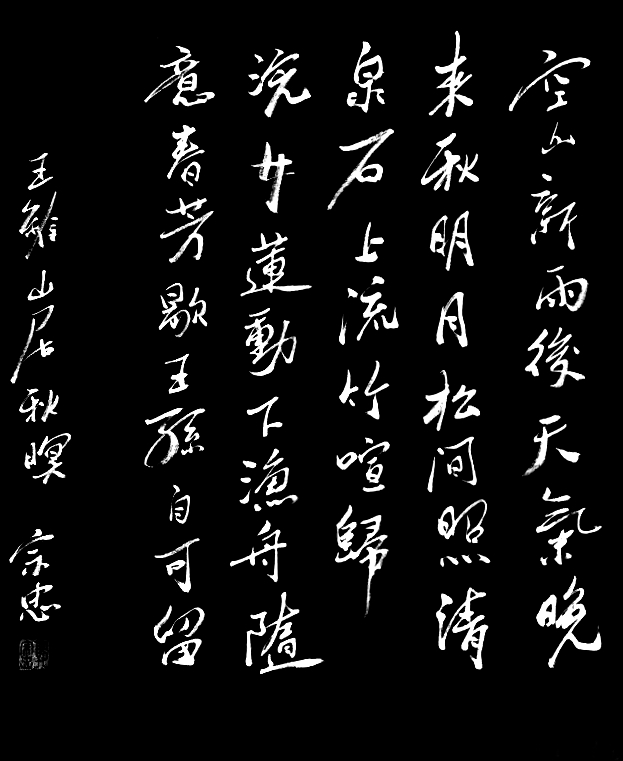 空山新雨後天氣晚
来秋明月松间照清
泉石上流竹喧歸
浣女蓮動下漁舟隨
意春芳歇王孫自可留
王維山居秋暝 宗忠